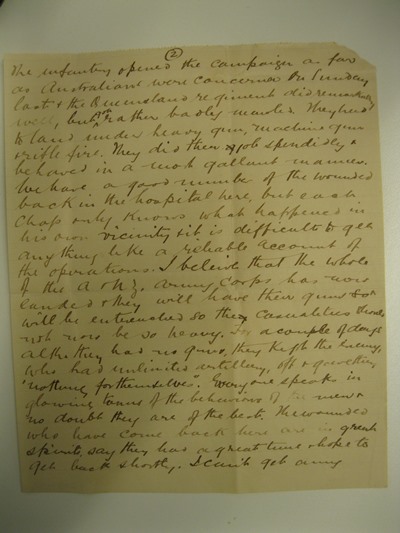 (2)
The infantry opened the campaign as far
as Australians were concerned On Sunday
last & the Queensland regiment did remarkably
well, but rather badly mauled. They had
to land under heavy gun, machine gun
& rifle fire. They did their job spendidly &
behaved in a most gallant manner.
We have a good number of the wounded
back in the hospital here, but each
chap only knows what happened in
his own vicinity & it is difficult to get
anything like a reliable account of
the operations. I believe that the whole
of the A & N.Z. Army Corps has now
landed & they will have their guns &
will be entrenched so they casualties should
not now be so heavy. For a couple of days
altho they had no guns, they kept the enemy,
who had unlimited artillery, off &
"nothing for themselves". Everyone speaks in
glowing terms of the behaviour of the men &
no doubt they are of the best. The wounded
who have come back here are in great
spirits, say they had a great time & hope to
get back shortly. I can't get any